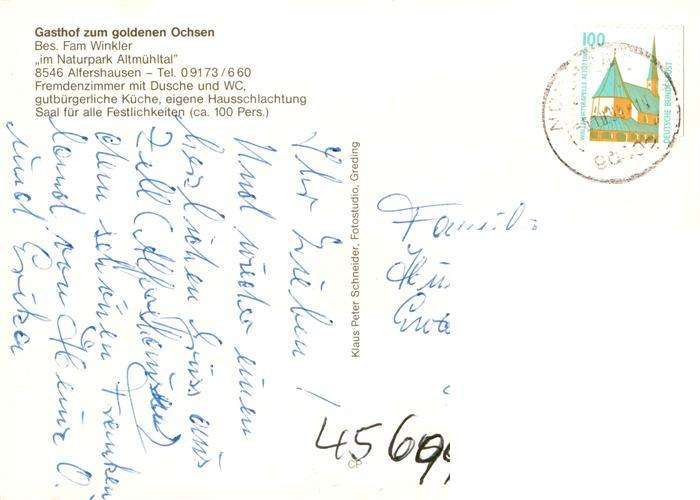 Gasthof zum goldenen Ochsen
Bes. Fam Winkler
„im Naturpark Altmühltal"
8546 Alfershausen – Tel. 0 91 73 / 6 60
Fremdenzimmer mit Dusche und WC,
gutbürgerliche Küche, eigene Hausschlachtung
Saal für alle Festlichkeiten (ca. 100 Pers.)
100
WALLFAHRTSKAPELLE ALTÖTTING
DEUTSCHE BUNDESPOST
Ihr Lieben!
Und wieder einen
herzlichen Gruss aus
Zell (Alfershausen)
dem schönen Franken
land, von Heinz
und Erika
Klaus Peter Schneider, Fotostudio, Greding
Familie
4569
CP